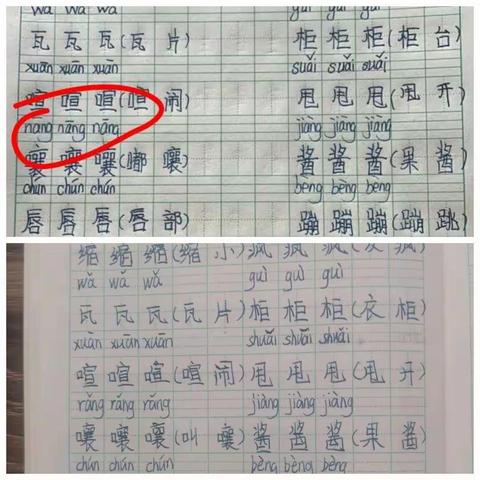 guì guì guì
瓦 瓦 瓦 (瓦 片) 柜 柜 柜 (柜 台)
xuān xuān xuān suǎi suǎi suǎi
喧 喧 喧 (喧 闹) 甩 甩 甩 (甩 开)
nāng nāng nāng jiàng jiàng jiàng
嚷 嚷 嚷 (嘟 嚷) 酱 酱 酱 (果 酱)
chún chún chún bèng bèng bèng
唇 唇 唇 (唇 部) 蹦 蹦 蹦 (蹦 跳)
缩 缩 缩 (缩 小) 疯 疯 疯 (发 疯)
wǎ wǎ wǎ guì guì guì
瓦 瓦 瓦 (瓦 片) 柜 柜 柜 (衣 柜)
xuān xuān xuān shuǎi shuǎi shuǎi
喧 喧 喧 (喧 闹) 甩 甩 甩 (甩 开)
rǎng rǎng rǎng jiàng jiàng jiàng
嚷 嚷 嚷 (叫 嚷) 酱 酱 酱 (果 酱)
chún chún chún bèng bèng bèng